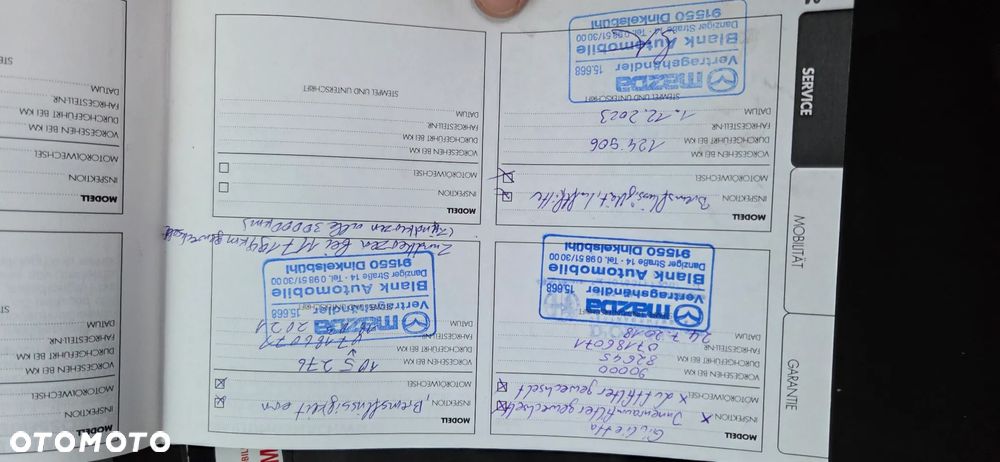 SERVICE
MOBILITÄT
GARANTIE
MODELL Giulietta
INSPEKTION x Innenraumfilter gewechselt
MOTORÖLWECHSEL x Luftfilter gewechselt
VORGESEHEN BEI KM 90000
DURCHGEFÜHRT BEI KM 82245
FAHRGESTELLNR. 07186071
DATUM 24.7.2018
mazda
Vertragshändler 15.668
Blank Automobile
Danziger Straße 14 · Tel. 0 98 51/30 00
91550 Dinkelsbühl
MODELL
INSPEKTION Bremsflüssigkeit, Luftfilter
MOTORÖLWECHSEL
VORGESEHEN BEI KM
DURCHGEFÜHRT BEI KM 124 906
FAHRGESTELLNR.
DATUM 1.12.2023
STEMPEL UND UNTERSCHRIFT
mazda
Vertragshändler 15.668
Blank Automobile
Danziger Straße 14 · Tel. 0 98 51/30 00
91550 Dinkelsbühl
MODELL
INSPEKTION , Bremsflüssigkeit ern
MOTORÖLWECHSEL
VORGESEHEN BEI KM
DURCHGEFÜHRT BEI KM 105 276
FAHRGESTELLNR.
DATUM 2021
STEMPEL UND UNTERSCHRIFT
mazda
Vertragshändler 15.668
Blank Automobile
Danziger Straße 14 · Tel. 0 98 51/30 00
91550 Dinkelsbühl
Zündkerzen bei 117194 km gewechselt
(Zündkerzen alle 30000 km)
MODELL
INSPEKTION
MOTORÖLWECHSEL
VORGESEHEN BEI KM
DURCHGEFÜHRT BEI KM
FAHRGESTELLNR.
DATUM
STEMPEL UND UNTERSCHRIFT
MODELL
INSPEKTION
MOTORÖLWECHSEL
VORGESEHEN BEI KM
DURCHGEFÜHRT BEI KM
FAHRGESTELLNR.
DATUM
MODELL
INSPEKTION
MOTORÖLWECHSEL
VORGESEHEN BEI KM
DURCHGEFÜHRT BEI KM
FAHRGESTELLNR.
DATUM
OTOMOTO